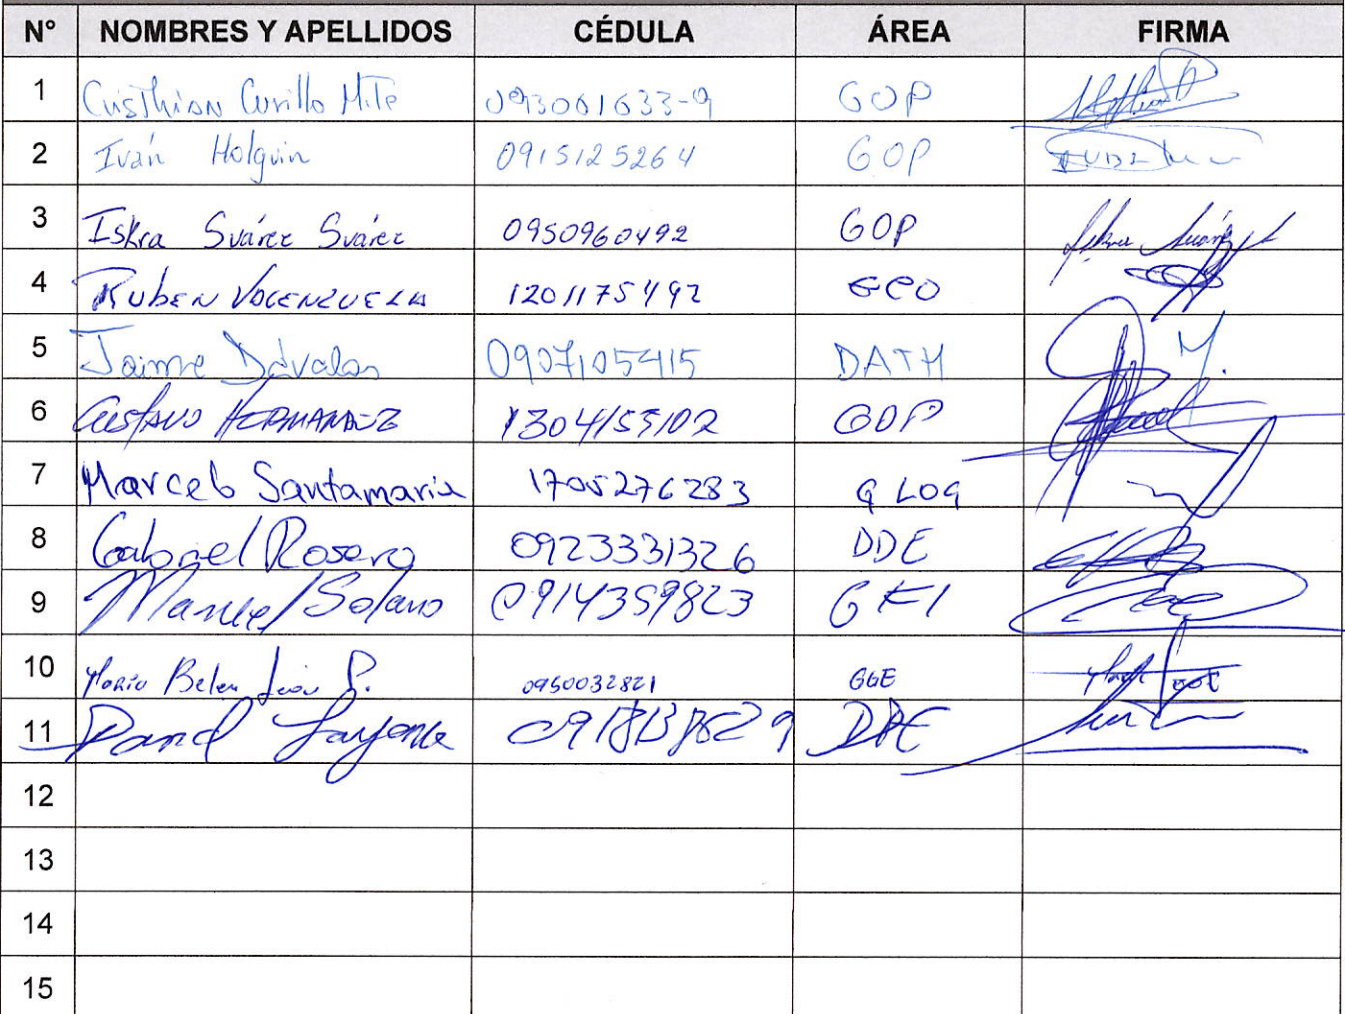 N° NOMBRES Y APELLIDOS CÉDULA ÁREA FIRMA
1 Cristhian Curillo Mite 093061633-9 GOP
2 Iván Holguin 0915125264 GOP
3 Iskra Suárez Suárez 0950960492 GOP
4 Ruben Valenzuela 1201175492 GCO
5 Jaime Dávalos 0907105415 DATH
6 Gustavo Hernandez 1304155102 GOP
7 Marcelo Santamaria 1705276283 G LOG
8 Gabriel Rosero 0923331326 DDE
9 Manuel Solano 0914359823
10 Maria Belen León P. 0950032821 GGE
11
12
13
14
15